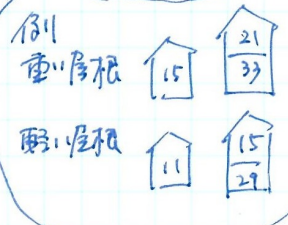 例
重い屋根 15 21
33
軽い屋根 11 15
29